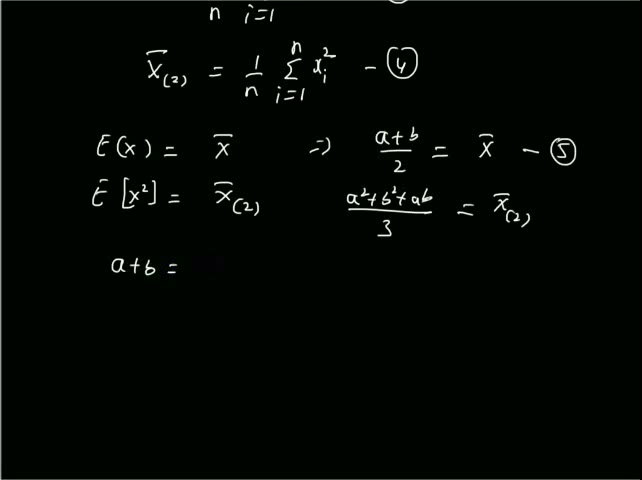 n i=1
x̄₍₂₎ = 1/n Σⁿᵢ₌₁ xᵢ² - ④
E(x) = x̄ ⇒ (a+b)/2 = x̄ - ⑤
E[x²] = x̄₍₂₎ (a²+b²+ab)/3 = x̄₍₂₎
a+b =